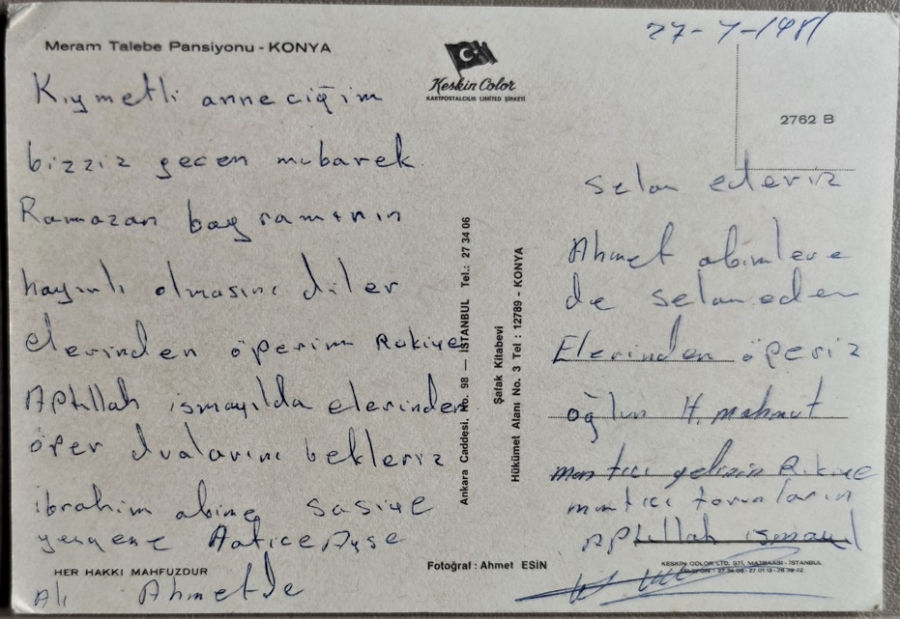 Meram Talebe Pansiyonu - KONYA
Kıymetli anneciğim
bizziz geçen mubarek
Ramazan bayramının
hayırlı olmasını diler
elerinden öperim Rukiye
Aptillah ismayılda elerinden
öper dualarını bekleriz
ibrahim abime sasiye
yengene Aatice Ayşe
HER HAKKI MAHFUZDUR
Ali Ahmetde
Keskin Color
KARTPOSTALCILIK LİMİTED ŞİRKETİ
Ankara Caddesi, No. 98 — İSTANBUL Tel.: 27 34 06
Şafak Kitabevi
Hükümet Alanı No. 3 Tel : 12789 - KONYA
Fotoğraf : Ahmet ESİN
27-7-1981
2762 B
selam ederiz
Ahmet abimlere
de selam eden
Elerinden öperiz
oğlun H. mahmut
mantıcı gelinin Rukiye
mantıcı torunların
Aptillah ismayıl
KESKİN COLOR LTD. ŞTİ. MATBAASI - İSTANBUL